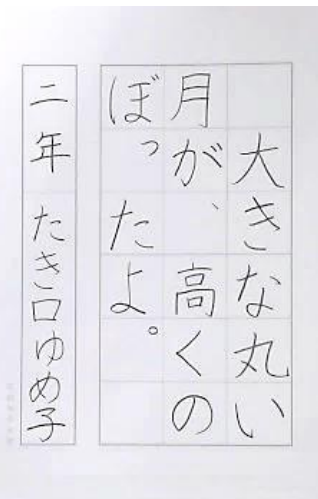 大きな丸い
月が、高くの
ぼったよ。
二年 たき口ゆめ子